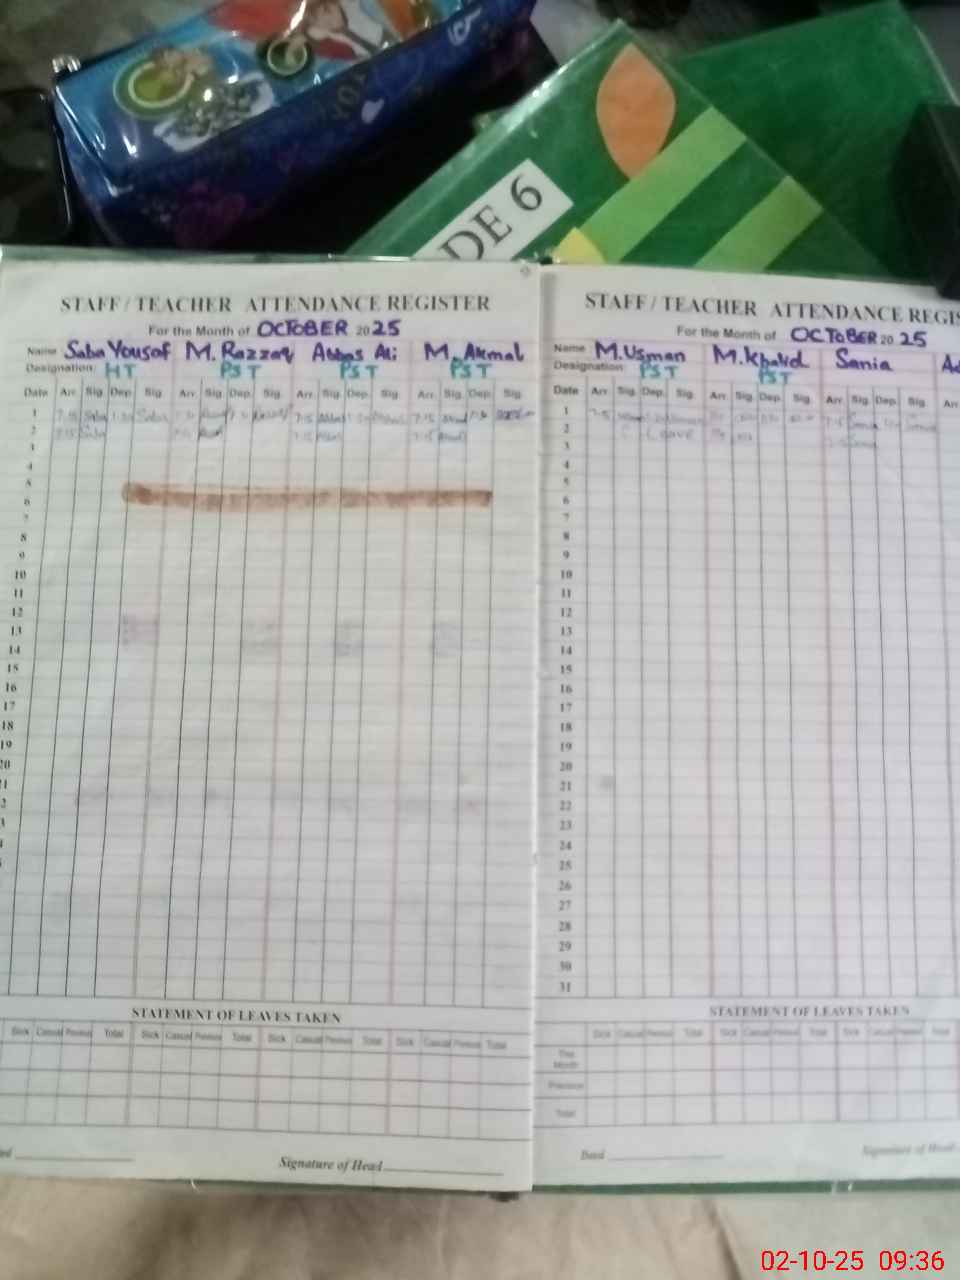 DE 6
STAFF / TEACHER ATTENDANCE REGISTER
For the Month of OCTOBER 2025
Name Saba Yousaf M. Razzaq Abbas Ali M. Akmal
Designation: HT PST PST PST
Date Arr. Sig. Dep. Sig. Arr. Sig. Dep. Sig. Arr. Sig. Dep. Sig. Arr. Sig. Dep. Sig.
1 7-15 Saba Saba 7-15 Abbas 7-15
2 7-15 Saba 7-15 Abbas 7-15
3
4
5
6
7
8
9
10
11
12
13
14
15
16
17
18
19
20
STATEMENT OF LEAVES TAKEN
Sick Casual Previous Total Sick Casual Previous Total Sick Casual Previous Total Sick Casual Previous Total
Signature of Head
STAFF / TEACHER ATTENDANCE REGIS
For the Month of OCTOBER 2025
Name M. Usman M. Khalid Sania Ad
Designation: PST PST
Date Arr. Sig. Dep. Sig. Arr. Sig. Dep. Sig. Arr. Sig. Dep. Sig. Arr
1 7-15 7-15 Sania
2 Leave
3
4
5
6
7
8
9
10
11
12
13
14
15
16
17
18
19
20
21
22
23
24
25
26
27
28
29
30
31
STATEMENT OF LEAVES TAKEN
Sick Casual Previous Total Sick Casual Previous Total Sick Casual Previous Total
This Month
Previous
Total
Signature of Head
02-10-25 09:36